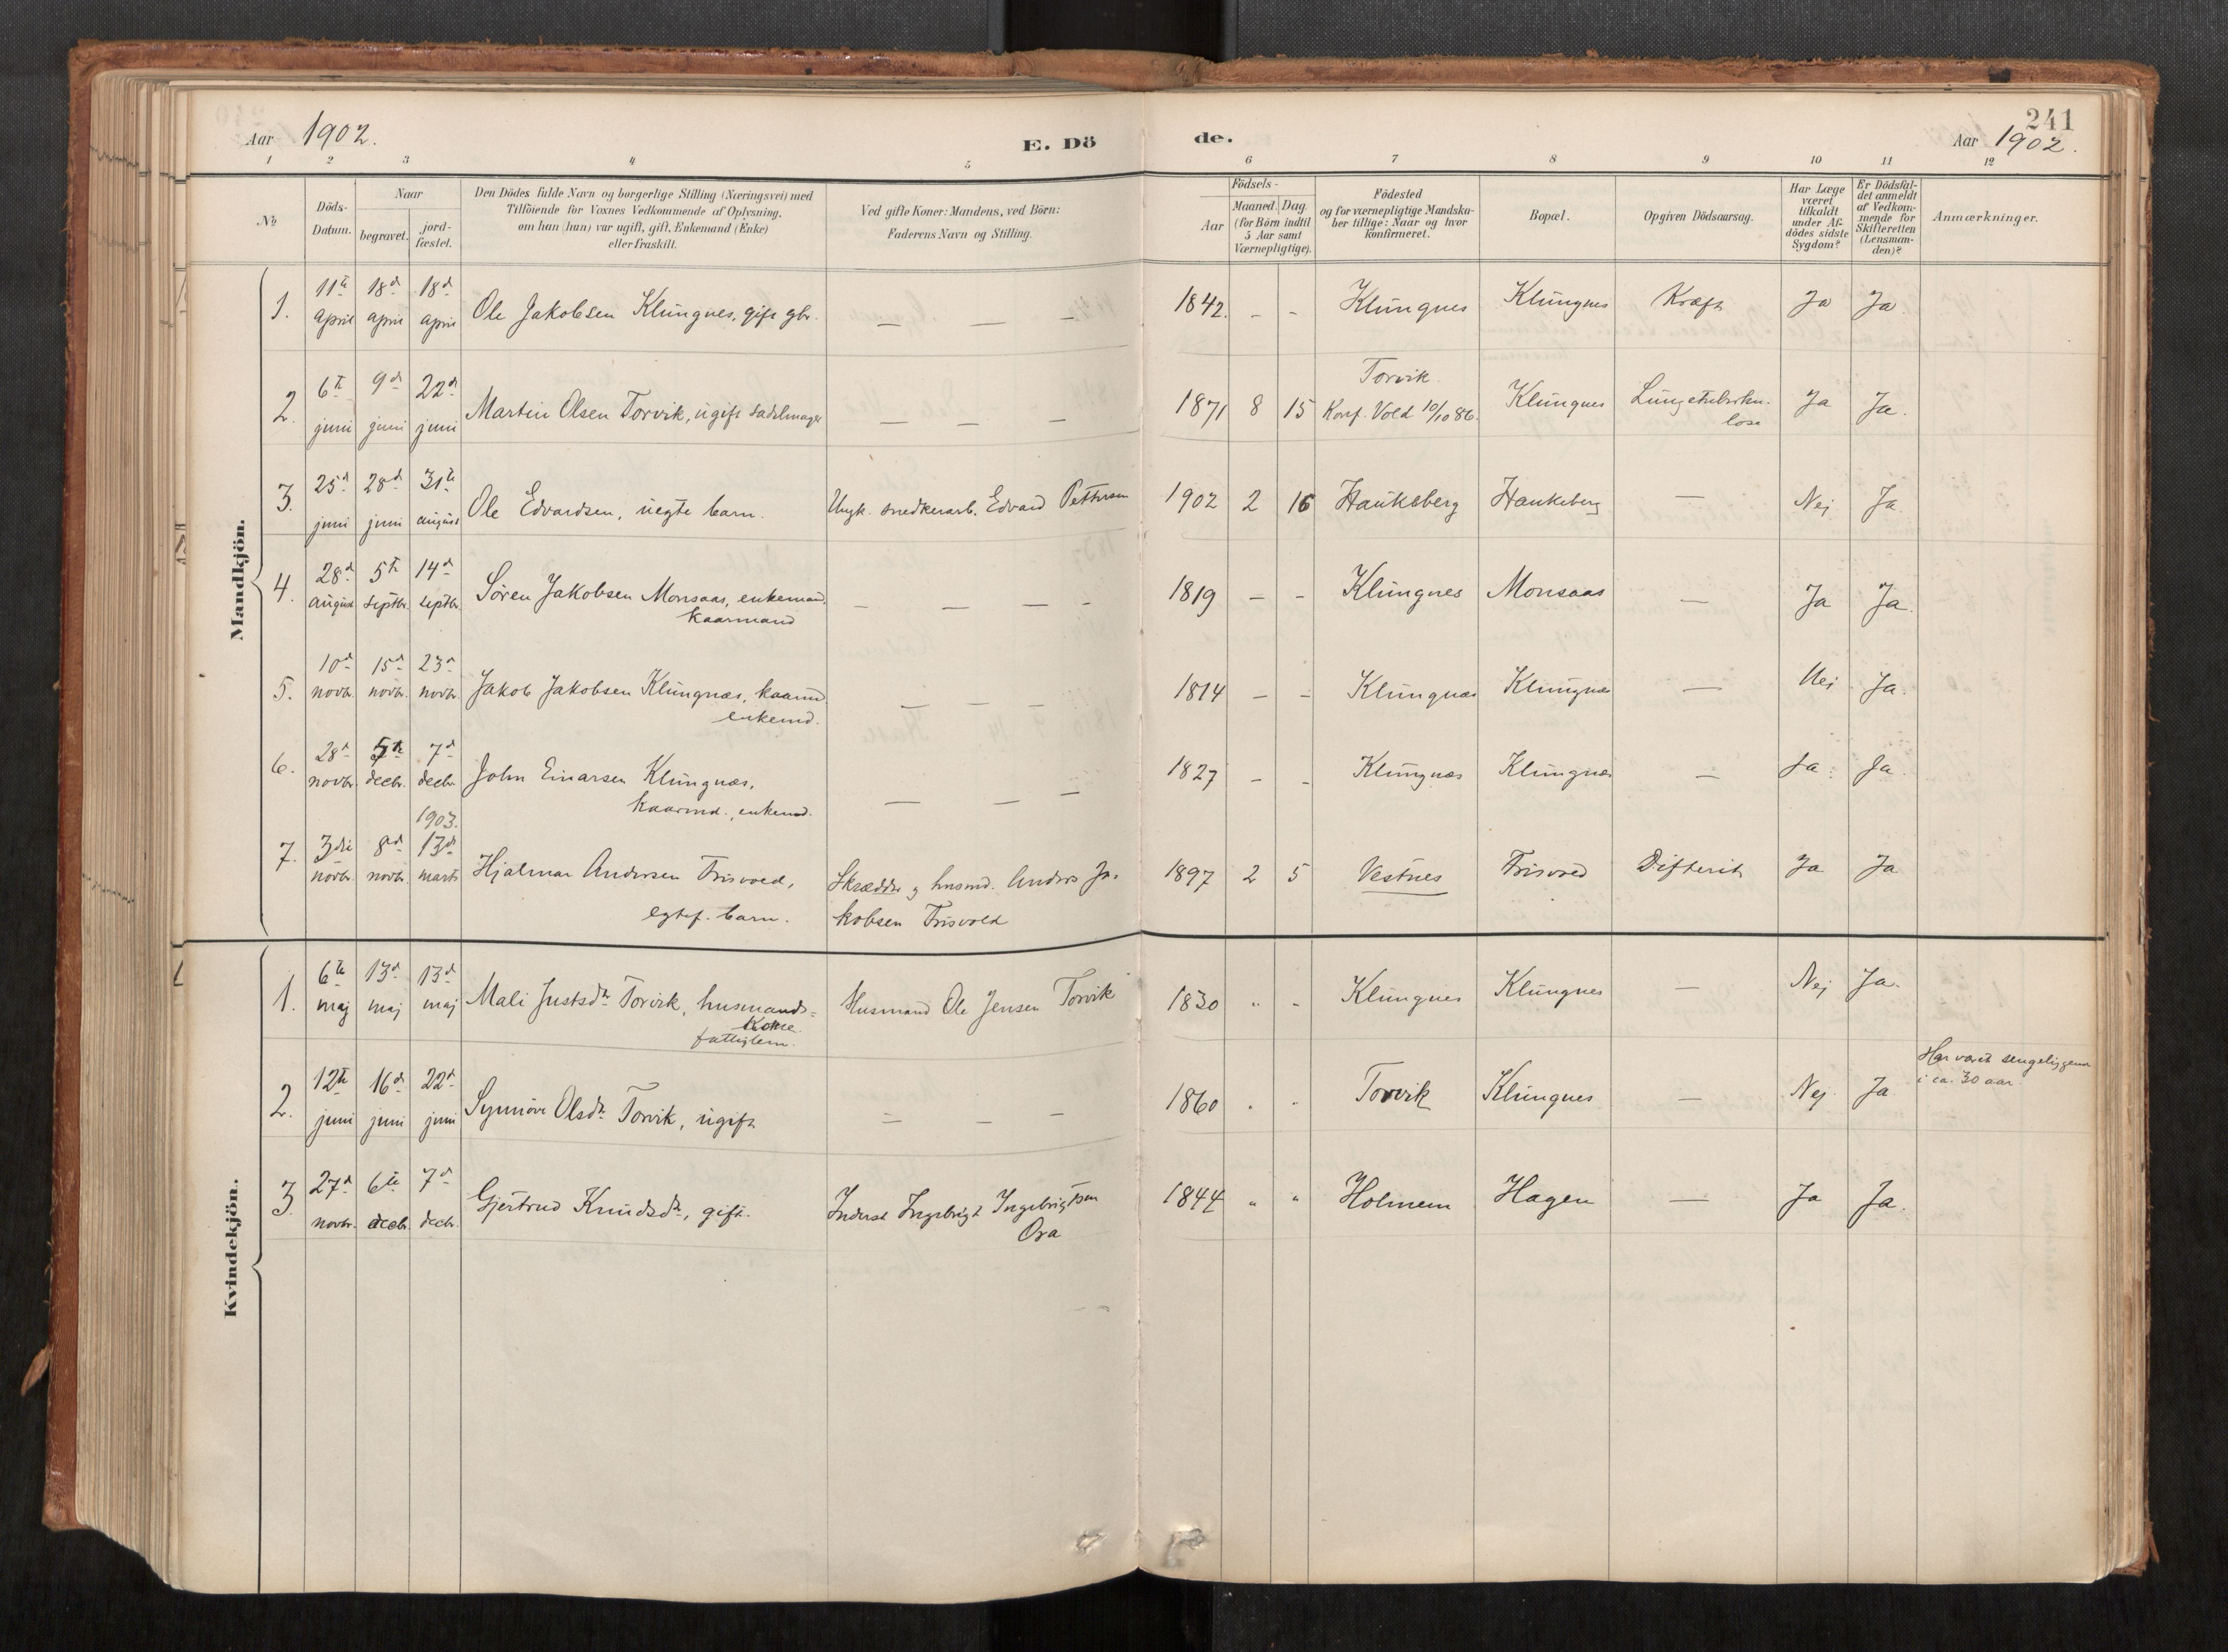 241
Aar 1902. E. Dö de. Aar 1902.
1 2 3 4 5 6 7 8 9 10 11 12
No.
Döds-
Datum.
Naar
begravet.
jord-
fæstet.
Den Dödes fulde Navn og borgerlige Stilling (Næringsvei) med
Tilföiende for Voxnes Vedkommende af Oplysning,
om han (hun) var ugift, gift, Enkemand (Enke)
eller fraskilt.
Ved gifte Koner: Mandens, ved Börn:
Faderens Navn og Stilling.
Födsels-
Aar
Maaned. Dag.
(for Börn indtil
5 Aar samt
Værnepligtige).
Födested
og for værnepligtige Mandska-
ber tillige: Naar og hvor
konfirmeret.
Bopæl.
Opgiven Dödsaarsag.
Har Læge
været
tilkaldt
under Af-
dödes sidste
Sygdom?
Er Dödsfal-
det anmeldt
af Vedkom-
mende for
Skifteretten
(Lensman-
den)?
Anmærkninger.
Mandkjön.
1. 11te april 18d april 18d april Ole Jakobsen Klungnes, gift gbr. — — — 1842. - - Klungnes Klungnes Kræft Ja Ja.
2. 6te juni 9d juni 22d juni Martin Olsen Torvik, ugift sadelmager — — — 1871 8 15 Torvik
Konf. Vold 10/10 86. Klungnes Lungetuberku-
lose Ja Ja.
3. 25d juni 28d juni 31te august Ole Edvardsen, uegte barn. Ungk. snedkerarb. Edvard Pettersen 1902 2 16 Haukeberg Haukeberg — Nej Ja.
4. 28d august 5te septbr. 14d septbr. Sören Jakobsen Monsaas, enkemand,
kaarmand — — — - 1819 — - Klungnes Monsaas — Ja Ja.
5. 10d novbr. 15d novbr. 23d novbr. Jakob Jakobsen Klungnæs, kaarmd.
enkemd. — — — 1814 — - Klungnæs Klungnæs — Nei Ja.
6. 28d novbr. 5te decbr. 7d decbr. John Einarsen Klungnæs,
kaarmd., enkemd. — — — 1827 - - Klungnæs Klungnæs — Ja. Ja.
7. 3die novbr. 8d novbr. 1903. 13d marts Hjalmar Andersen Frisvoed,
egtef. barn. Skrædder og husmd. Anders Ja-
kobsen Frisvold 1897 2 5 Vestnes Frisvoed Difterit Ja Ja
Kvindekjön.
1. 6te maj 13d maj 13d maj Mali Justsdtr. Torvik, husmands-
kone.
fattiglem. Husmand Ole Jensen Torvik 1830 " - Klungnes Klungnes — Nej Ja.
2. 12te juni 16d juni 22d juni Synnöve Olsdtr. Torvik, ugift — — — 1860 " " Torvik Klungnes — Nej Ja Har været sengeliggende
i ca. 30 aar.
3. 27d novbr. 6te decbr. 7d decbr. Gjertrud Knudsdtr., gift. Inderst Ingebrigt Ingebrigtsen
Ora 1844 " " Holmem Hagen — Ja Ja.